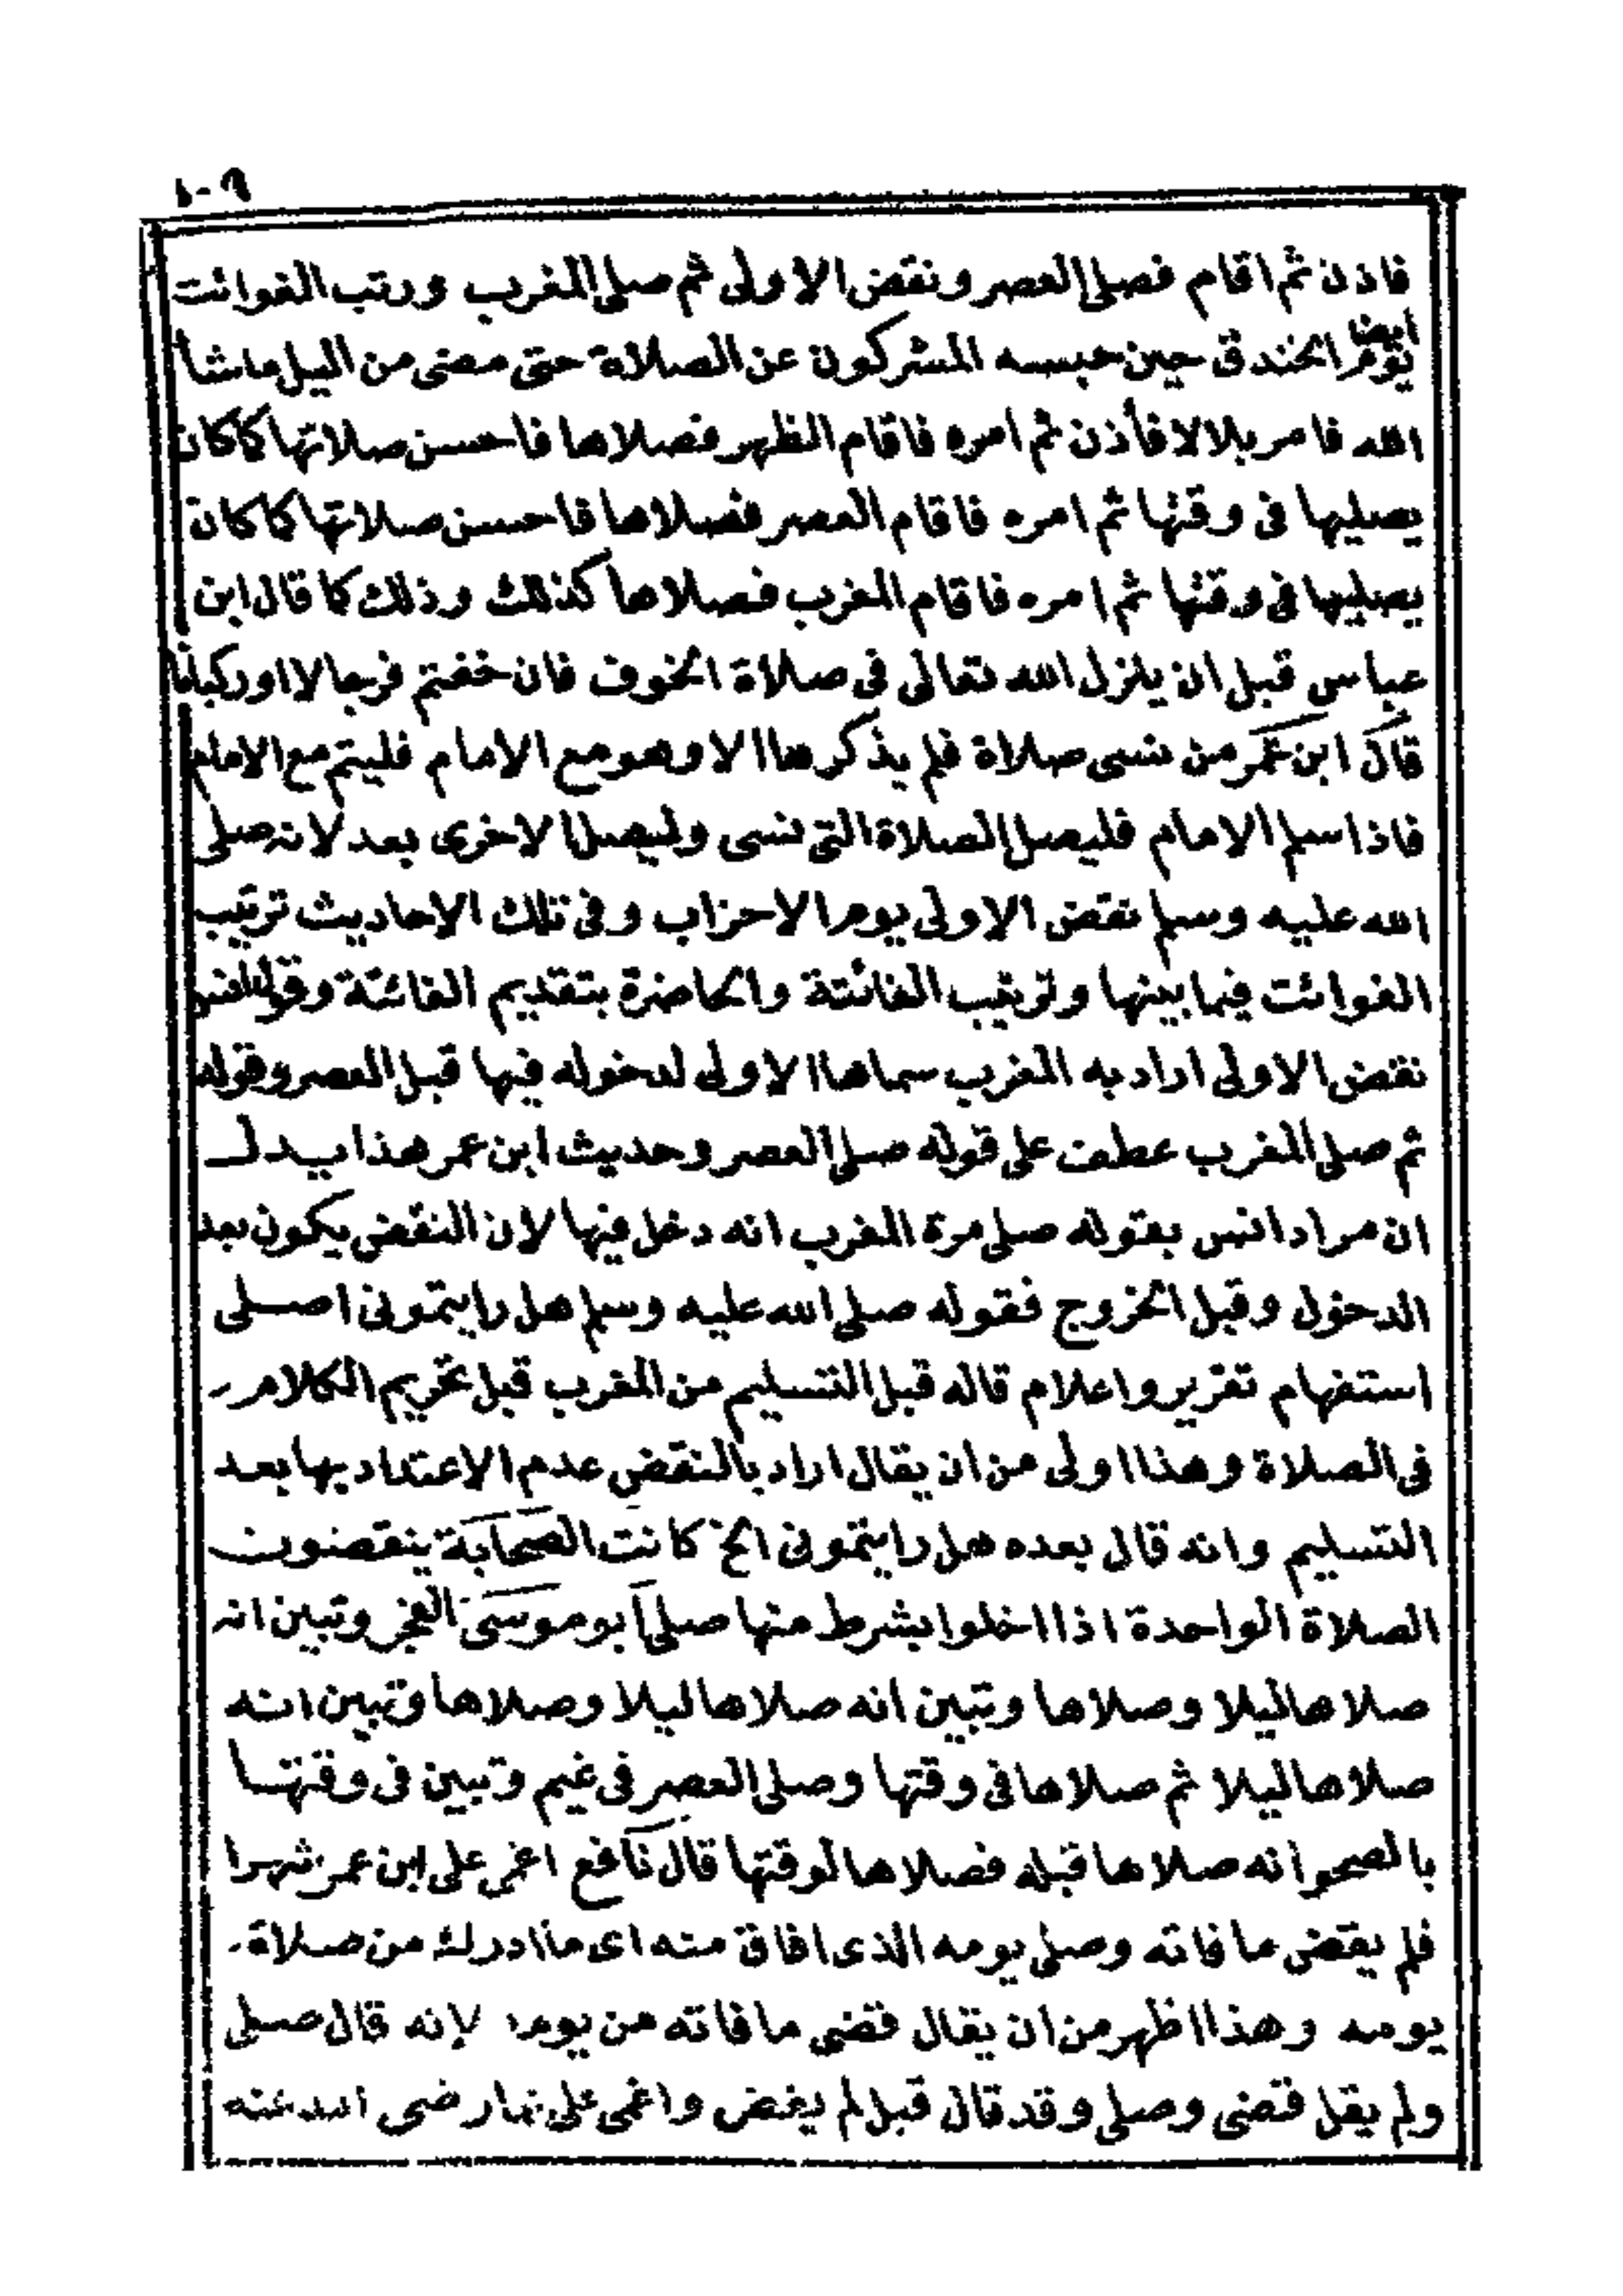 ١٠٩
فاذن ثم اقام فصلى العصر ونقض الاولى ثم صلى المغرب ورتب الفوائت
ايضا
يوم الخندق حين حبسه المشركون عن الصلاة حتى مضى من اليل ما شأ
الله فامر بلالا فأذن ثم امره فاقام الظهر فصلاها فاحسن صلاتها كما كان
يصليها فى وقتها ثم امره فاقام العصر فصلاها فاحسن صلاتها كما كان
يصليها فى وقتها ثم امره فاقام المغرب فصلاها كذلك وذلك كما قال ابن
عباس قبل ان ينزل الله تعالى فى صلاة الخوف فان خفتم فرجالا او ركبانا
قال ابن عمر من نسى صلاة فلم يذكرها الا وهو مع الامام فليتم مع الامام
فاذا سلم الامام فليصل الصلاة التى نسى وليصل الاخرى بعد لانه صلى
الله عليه وسلم نقض الاولى يوم الاحزاب وفى تلك الاحاديث ترتيب
الفوائت فيما بينها وترتيب الفائتة والحاضرة بتقديم الفائتة وقول
نقض الاولى اراد به المغرب سماها الاولى لدخوله فيها قبل العصر وقوله
ثم صلى المغرب عطف على قوله صلى العصر وحديث ابن عمر هذا يدل
ان مراد انس بقوله صلى مرة المغرب انه دخل فيها لان النقض يكون بعد
الدخول وقبل الخروج فقوله صلى الله عليه وسلم هل رايتمونى اصلى
استفهام تقرير واعلام قاله قبل التسليم من المغرب قبل تحريم الكلام
فى الصلاة وهذا اولى من ان يقال اراد بالنقض عدم الاعتداد بها بعد
التسليم وانه قال بعده هل رايتمونى الخ كانت الصحابة ينقضون
الصلاة الواحدة اذا اخلوا بشرط منها صلى ابو موسى الفجر وتبين انه
صلاها ليلا وصلاها وتبين انه صلاها ليلا وصلاها وتبين انه
صلاها ليلا ثم صلاها فى وقتها وصلى العصر فى غيم وتبين فى وقتها
بالصحو انه صلاها قبله فصلاها لوقتها قال نافع اغمى على ابن عمر شهرا
فلم يقض ما فاته وصلى يومه الذى افاق منه اى ما ادرك من صلاة
يومه وهذا اظهر من ان يقال قضى ما فاته من يومه لانه قال صلى
ولم يقل قضى وصلى وقد قال قبل لم يقض واغمى على عمار رضى الله عنه